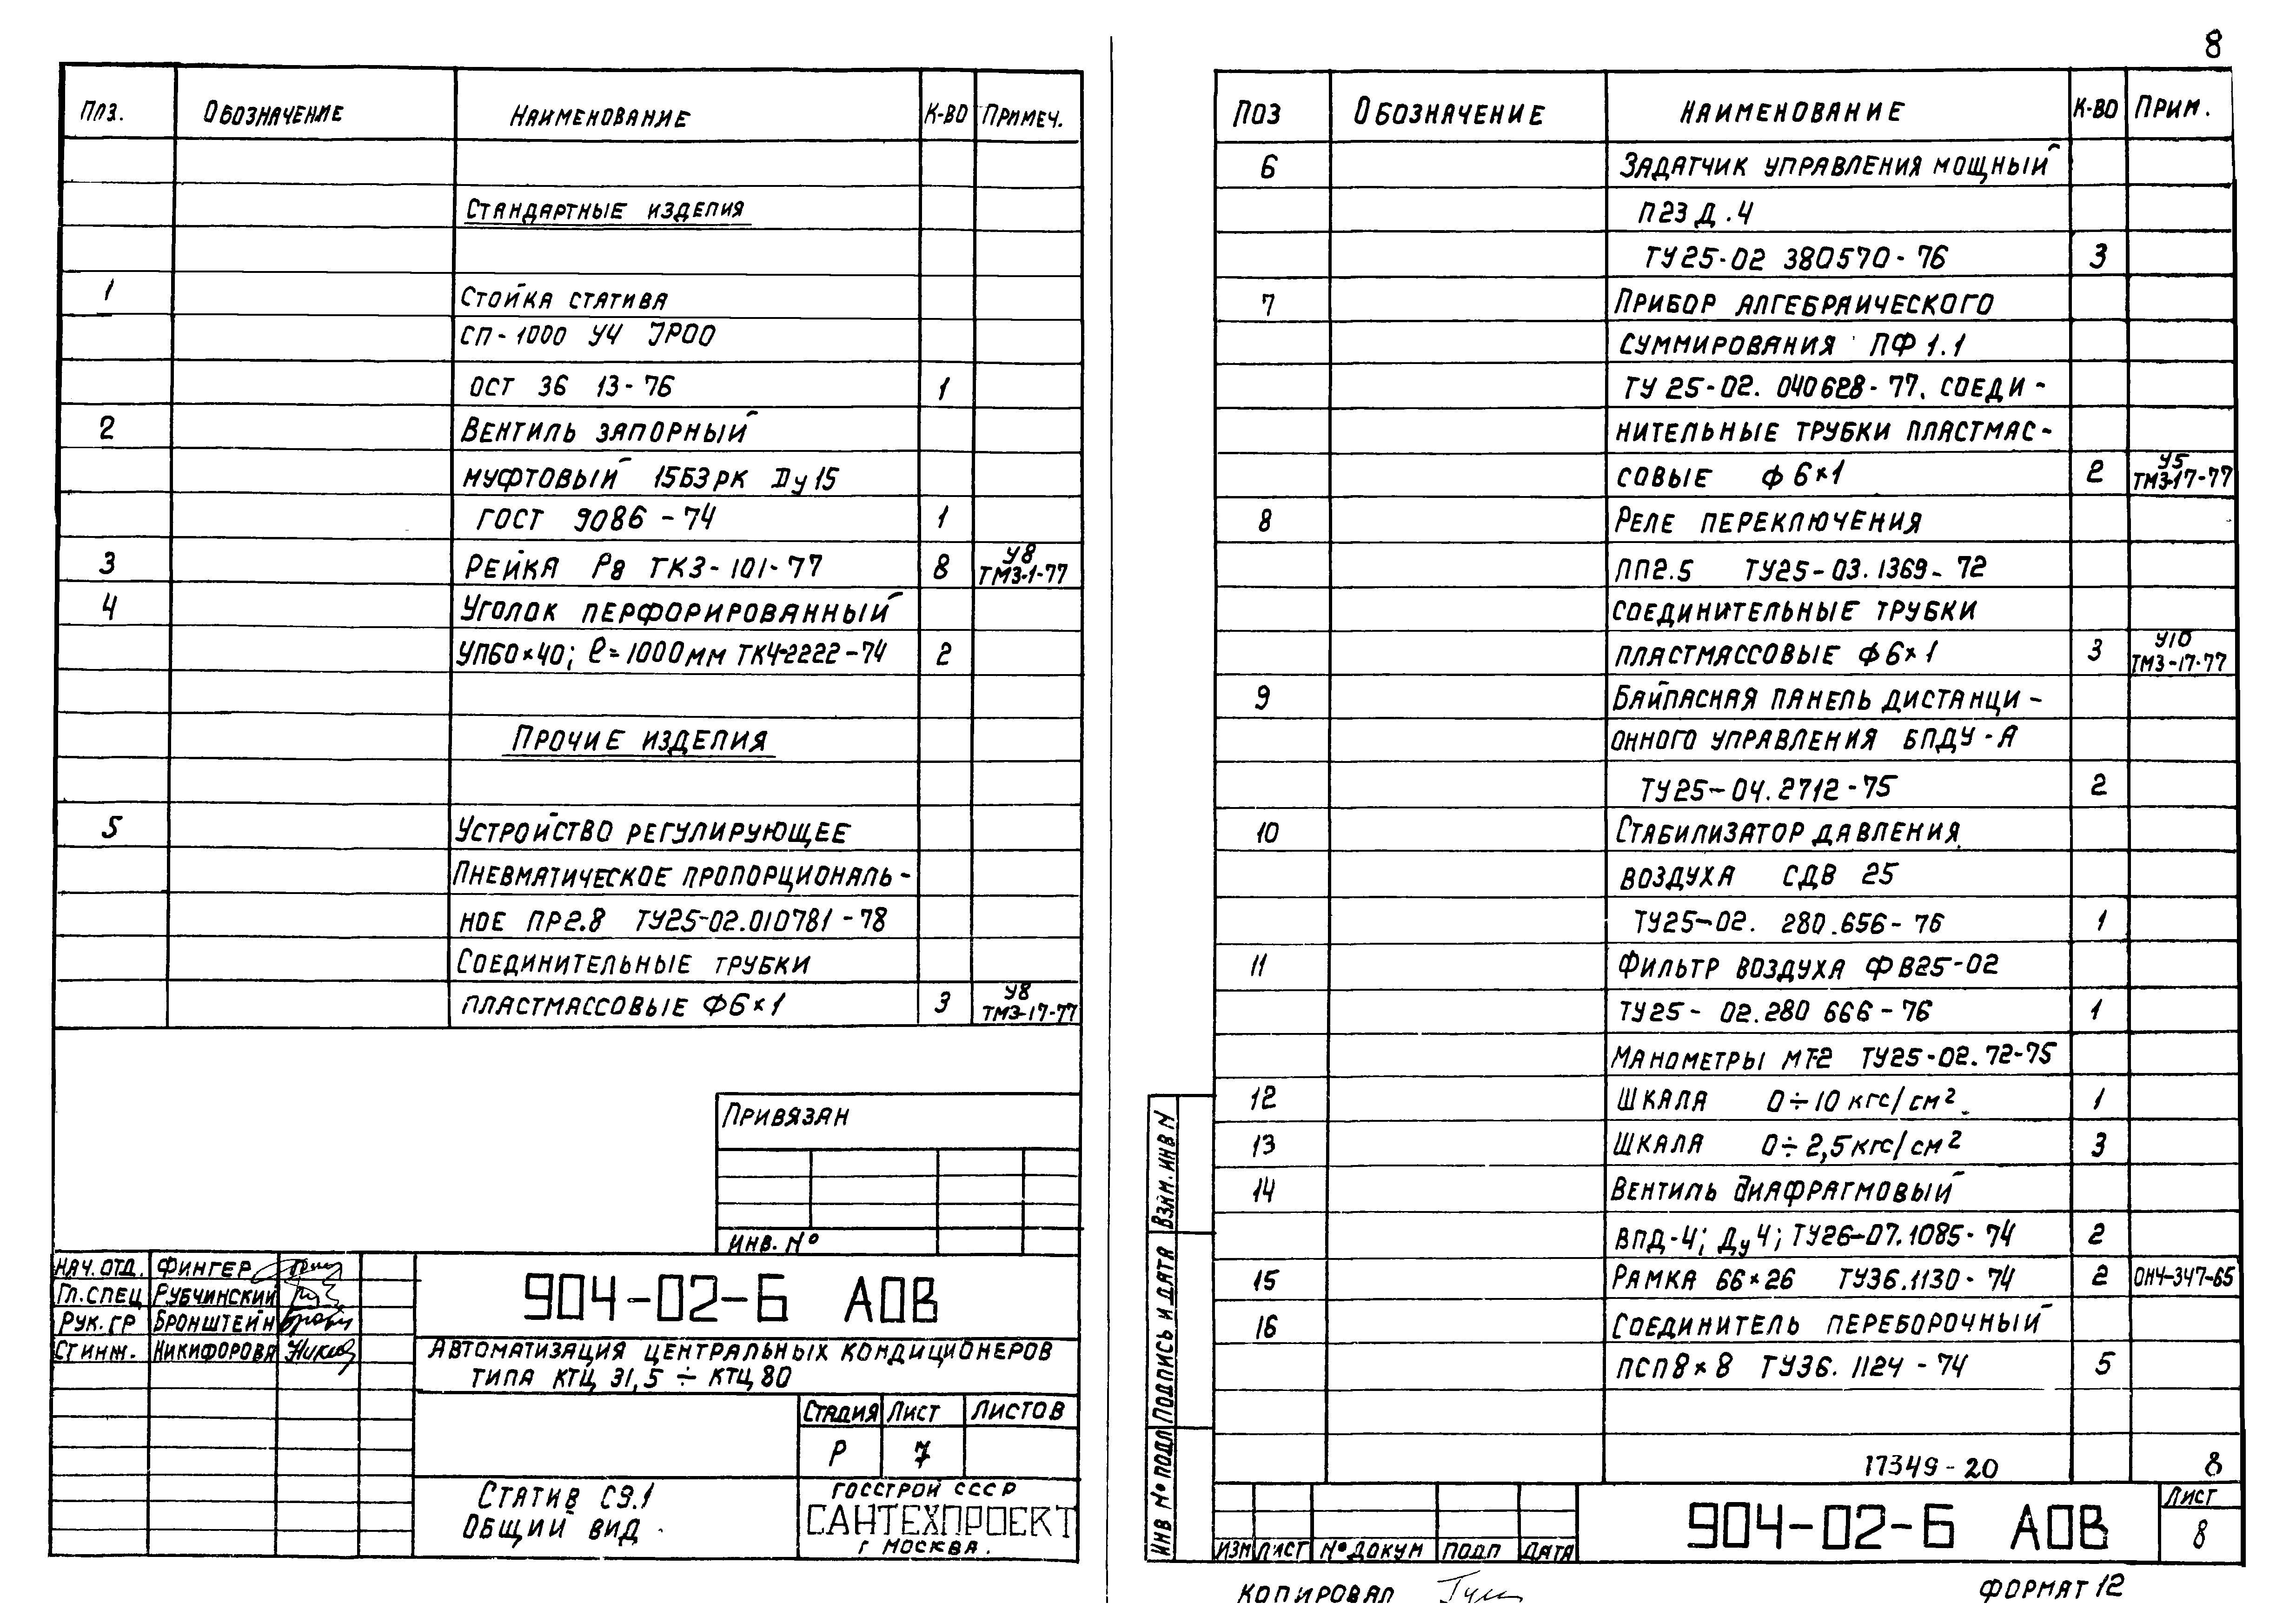 8
Поз. Обозначение Наименование К-во Примеч.
Стандартные изделия
1 Стойка статива
СП-1000 У4 JP00
ОСТ 36 13-76 1
2 Вентиль запорный
муфтовый 15Б3рк Dу15
ГОСТ 9086-74 1
3 Рейка Р8 ТК3-101-77 8 У8 ТМ3-1-77
4 Уголок перфорированный
УП60×40; ℓ=1000мм ТК4-2222-74 2
Прочие изделия
5 Устройство регулирующее
пневматическое пропорциональ-
ное ПР2.8 ТУ25-02.010781-78
Соединительные трубки
пластмассовые Ф6×1 3 У8 ТМ3-17-77
Привязан
Инв. №
Нач. отд. Фингер
Гл. спец Рубчинский
Рук. гр Бронштейн
Ст инж. Никифорова
904-02-Б АОВ
Автоматизация центральных кондиционеров
типа КТЦ 31,5 ÷ КТЦ 80
Стадия Лист Листов
Р 7
Статив С9.1
Общий вид
Госстрой СССР
САНТЕХПРОЕКТ
г Москва.
Поз Обозначение Наименование К-во Прим.
6 Задатчик управления мощный
П23Д.4
ТУ25-02 380570-76 3
7 Прибор алгебраического
суммирования ПФ1.1
ТУ 25-02. 040628-77. Соеди-
нительные трубки пластмас-
совые Ф 6×1 2 У5 ТМ3-17-77
8 Реле переключения
ПП2.5 ТУ25-03.1369-72
Соединительные трубки
пластмассовые Ф6×1 3 У10 ТМ3-17-77
9 Байпасная панель дистанци-
онного управления БПДУ-А
ТУ25-04.2712-75 2
10 Стабилизатор давления
воздуха СДВ 25
ТУ25-02. 280.656-76 1
11 Фильтр воздуха ФВ25-02
ТУ25-02.280 666-76 1
Манометры МТ-2 ТУ25-02.72-75
12 Шкала 0÷10 кгс/см² 1
13 Шкала 0÷2,5кгс/см² 3
14 Вентиль диафрагмовый
ВПД-4; Ду4; ТУ26-07.1085-74 2
15 Рамка 66×26 ТУ36.1130-74 2 ОН4-347-65
16 Соединитель переборочный
ПСП8×8 ТУ36.1124-74 5
17349-20 8
Взам. инв N
Подпись и дата
Инв № подл
Изм Лист № докум Подп Дата
904-02-Б АОВ
Лист
8
Копировал
Формат 12